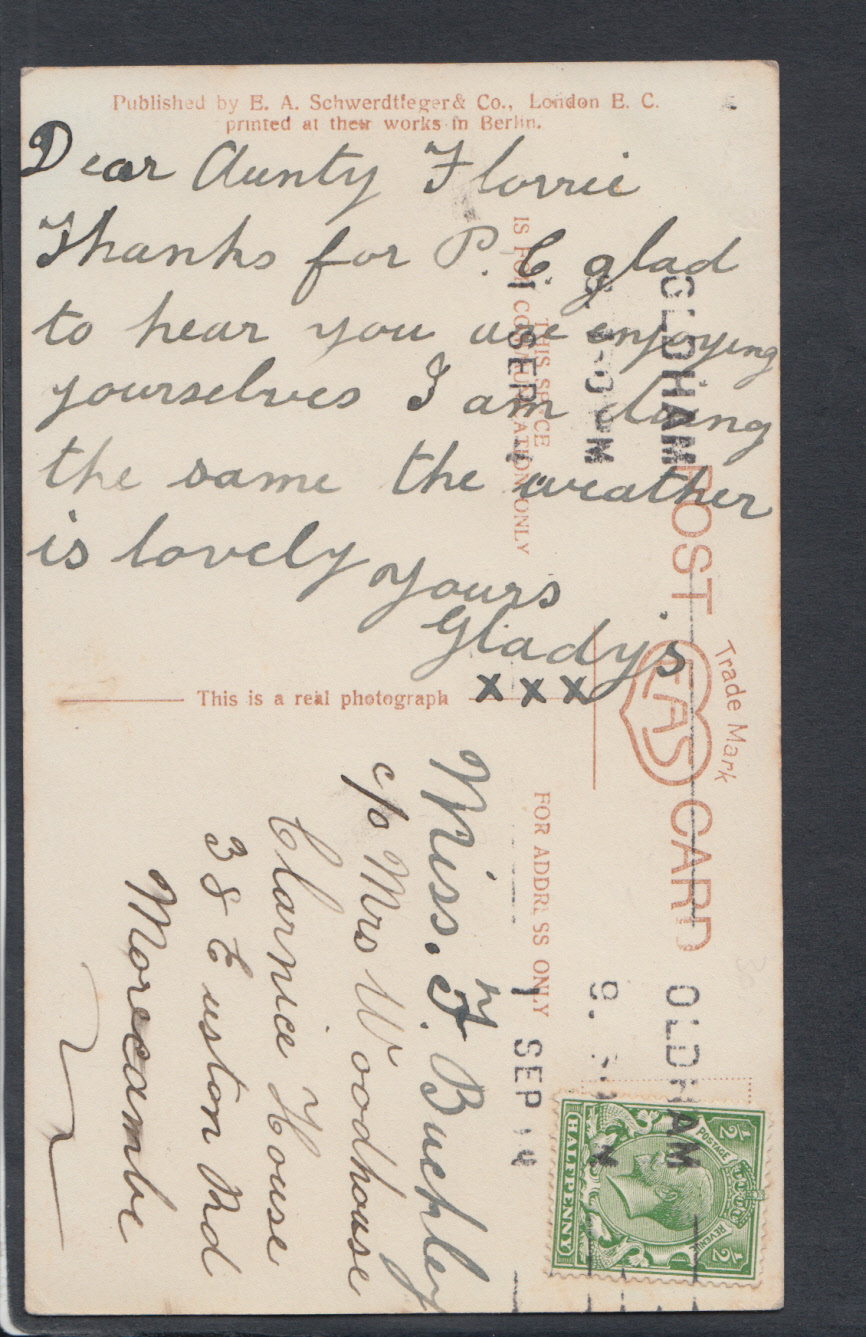 Published by E. A. Schwerdtfeger & Co., London E. C.
printed at their works in Berlin.
Dear Aunty Florrie
Thanks for P. C glad
to hear you are enjoying
yourselves I am doing
the same the weather
is lovely yours
Gladys
x x x
This is a real photograph
THIS SPACE
IS FOR COMMUNICATION ONLY
POST CARD
Trade Mark
EAS
FOR ADDRESS ONLY
OLDHAM
1 SEP 14
OLDHAM
1 SEP 14
Miss. F. Buckley
c/o Mrs Woodhouse
Clarnice House
38 Euston Rd
Morecambe
POSTAGE
REVENUE
1/2
1/2
HALFPENNY